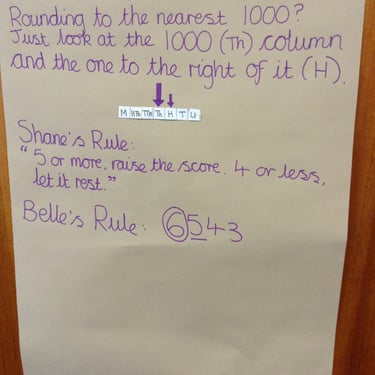 Rounding to the nearest 1000?
Just look at the 1000 (Th) column
and the one to the right of it (H).
M HTh TTh Th H T U
Shane's Rule:
"5 or more, raise the score. 4 or less,
let it rest."
Belle's Rule: 6543